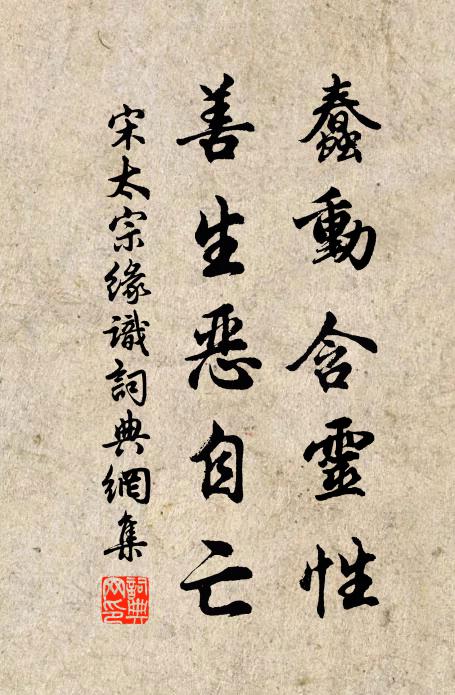 蠢動含靈性
善生惡自亡
宋太宗緣識詞典網集
詞典網印